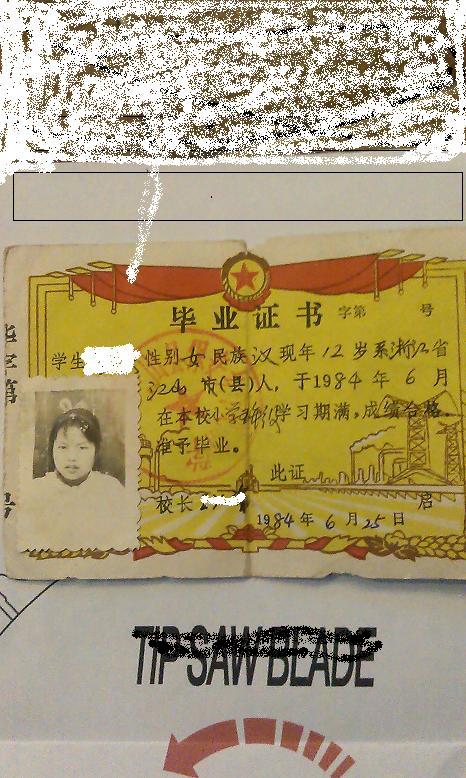 毕业证书 字第 号
学生 性别女民族汉现年12岁系浙江省
市(县)人,于1984年6月
在本校小学 学习期满,成绩合格
准予毕业。
此证
校长
1984年6月25日
毕
字第
号
TIP SAW BLADE